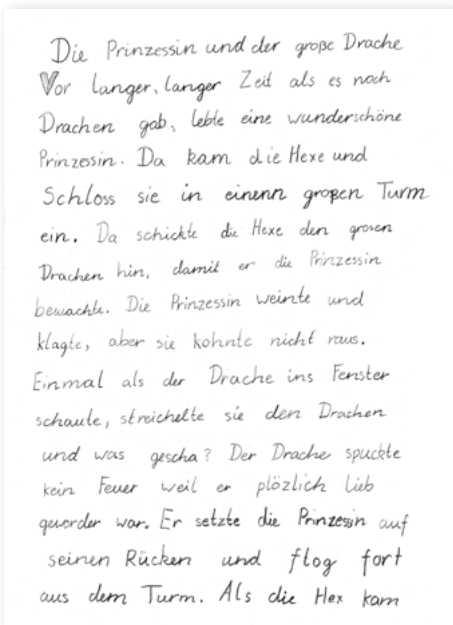 Die Prinzessin und der große Drache
Vor langer, langer Zeit als es noch
Drachen gab, lebte eine wunderschöne
Prinzessin. Da kam die Hexe und
Schloss sie in einenn großen Turm
ein. Da schickte die Hexe den grosen
Drachen hin, damit er die Prinzessin
bewachte. Die Prinzessin weinte und
klagte, aber sie kohnte nicht raus.
Einmal als der Drache ins Fenster
schaute, streichelte sie den Drachen
und was gescha? Der Drache spuckte
kein Feuer weil er plözlich lieb
geworder war. Er setzte die Prinzessin auf
seinen Rücken und flog fort
aus dem Turm. Als die Hex kam